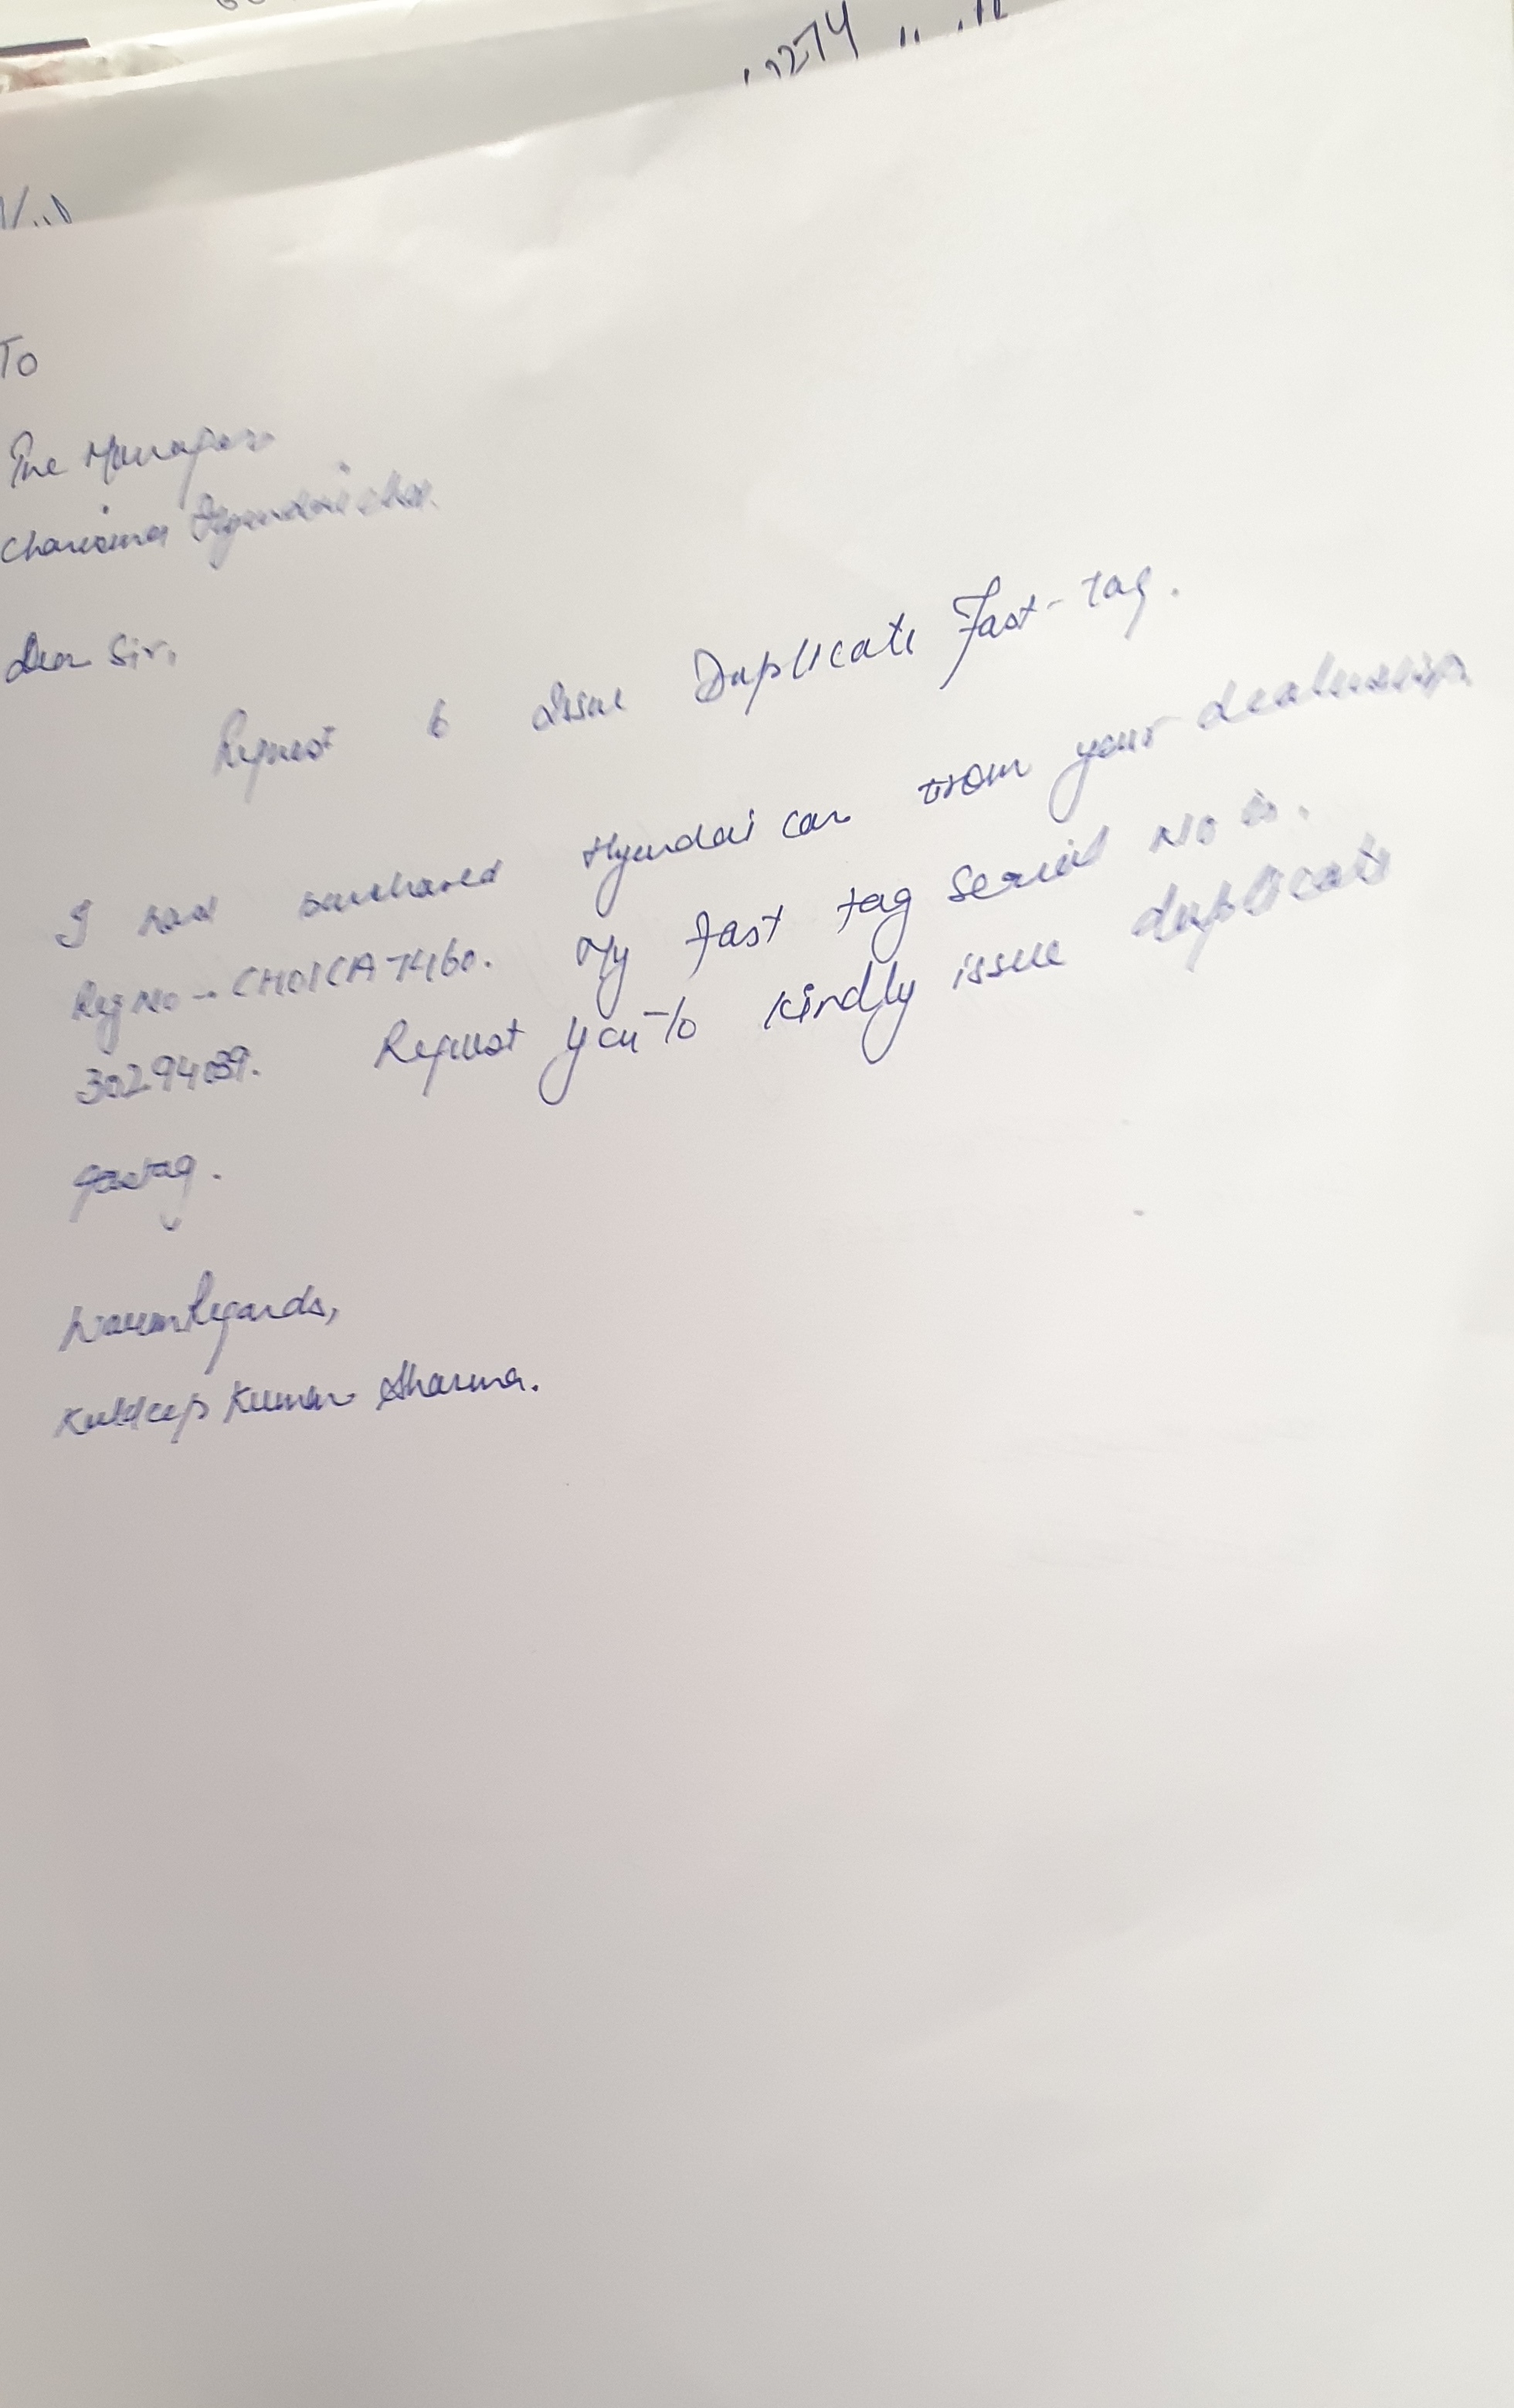 To
The Manager
Charisma Hyundai chd.
Dear Sir,
Request to issue Duplicate Fast-tag.
I had purchased Hyundai car from your dealership
Reg No - CH01CA7460. My fast tag Serial No is.
Request you to kindly issue duplicate
fastag.
Warm Regards,
Kuldeep Kumar Sharma.